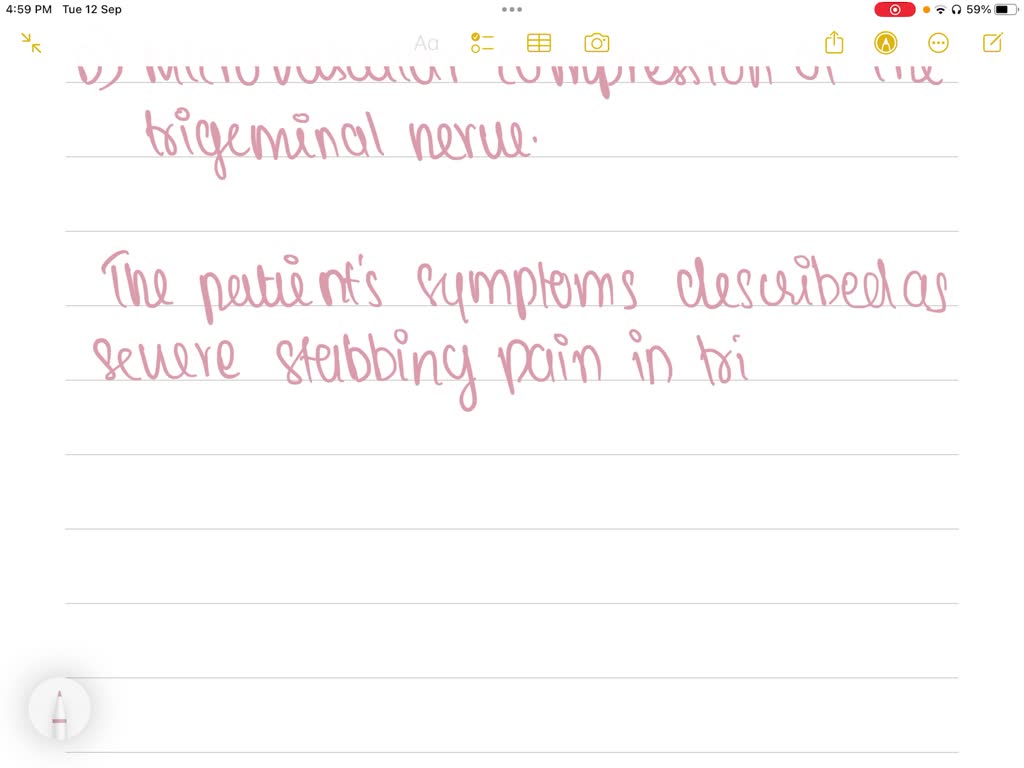 4:59 PM Tue 12 Sep
59%
Aa
b) Microvascular compression of the
trigeminal nerve.
The patient's symptoms described as
severe stabbing pain in tri